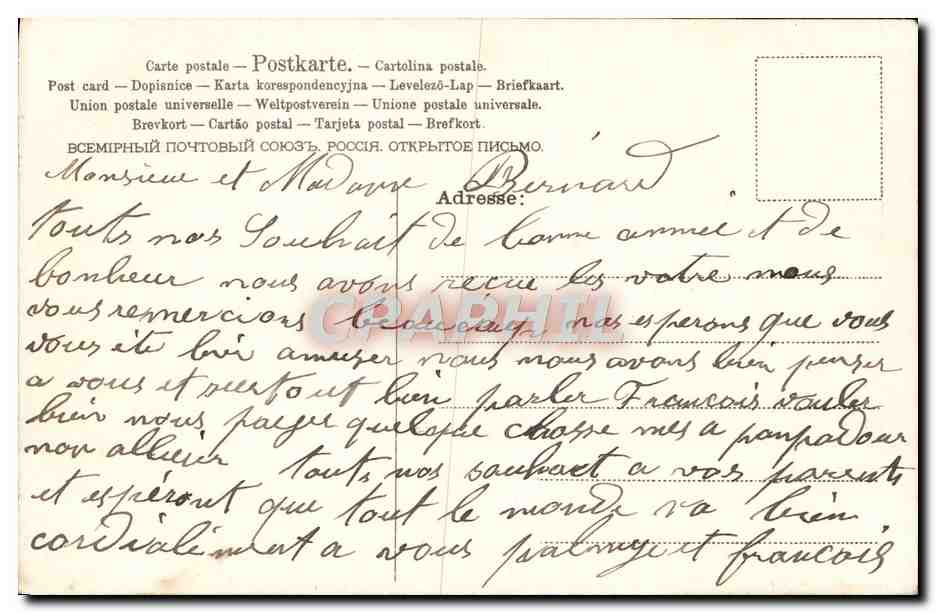 Carte postale — Postkarte. — Cartolina postale.
Post card — Dopisnice — Karta korespondencyjna — Levelező-Lap — Briefkaart.
Union postale universelle — Weltpostverein — Unione postale universale.
Brevkort — Cartão postal — Tarjeta postal — Brefkort.
ВСЕМІРНЫЙ ПОЧТОВЫЙ СОЮЗЪ. РОССІЯ. ОТКРЫТОЕ ПИСЬМО.
Monsieur et Madame Bernard
Adresse:
touts nos Souhait de bonne anneé et de
bonheur nous avons reçue les votre nous
CPAPHIL
vous remercions beaucoup nos esperons que vous
vous ete bien amuser nous nous avons bien penser
a vous et surtout bien parler Francois vouler
bien nous paeger quelque chosse mes a panpadour
non allieur touts nos souhaet a vos parents
et espéront que tout le monde va bien
cordialement a vous palmyre et francois